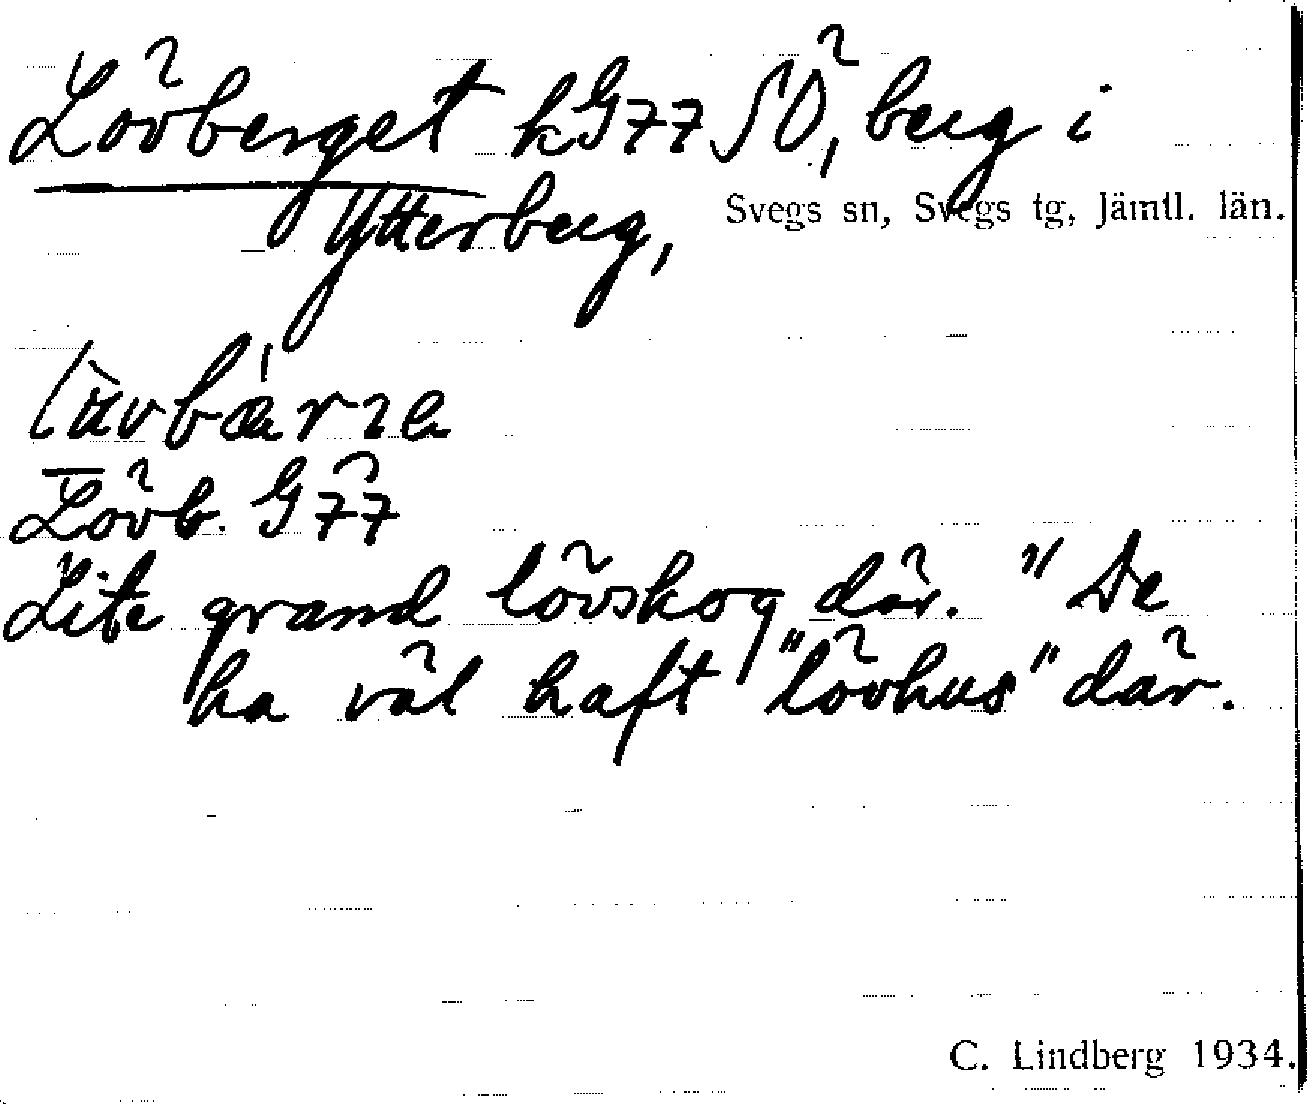 Lövberget kG77 SÖ, berg i
Ytterberg, Svegs sn, Svegs tg, Jämtl. län.
Lövb. G77
Lite grand lövskog där. "De
ha väl haft "lövhus" där.
C. Lindberg 1934.